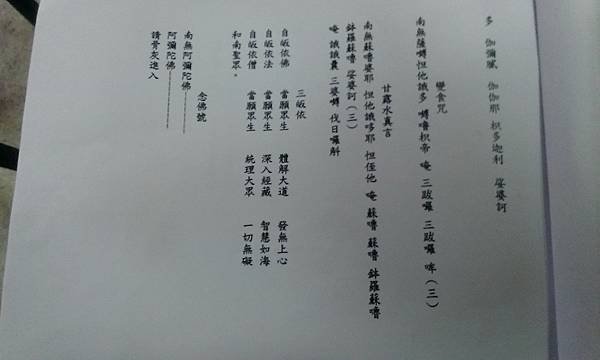 多 伽彌膩 伽伽那 枳多迦利 娑婆訶
變食咒
南無薩嚩怛他誐多 嚩嚕枳帝 唵 三跋囉 三跋囉 吽（三）
甘露水真言
南無蘇嚕婆耶 怛他誐哆耶 怛侄他 唵 蘇嚕 蘇嚕 鉢羅蘇嚕
鉢羅蘇嚕 娑婆訶（三）
唵 誐誐曩 三婆嚩 伐日囉斛
三皈依
自皈依佛 當願眾生 體解大道 發無上心
自皈依法 當願眾生 深入經藏 智慧如海
自皈依僧 當願眾生 統理大眾 一切無礙
和南聖眾。
念佛號
南無阿彌陀佛
阿彌陀佛
請骨灰進入